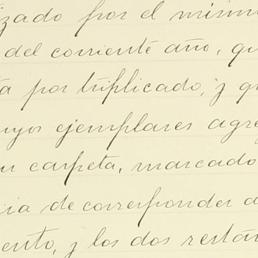 izado por el mismo
del corriente año, qu
ta por triplicado, y q
uyos ejemplares agre
su carpeta, marcado
cia de corresponder a
iento, y los dos restan